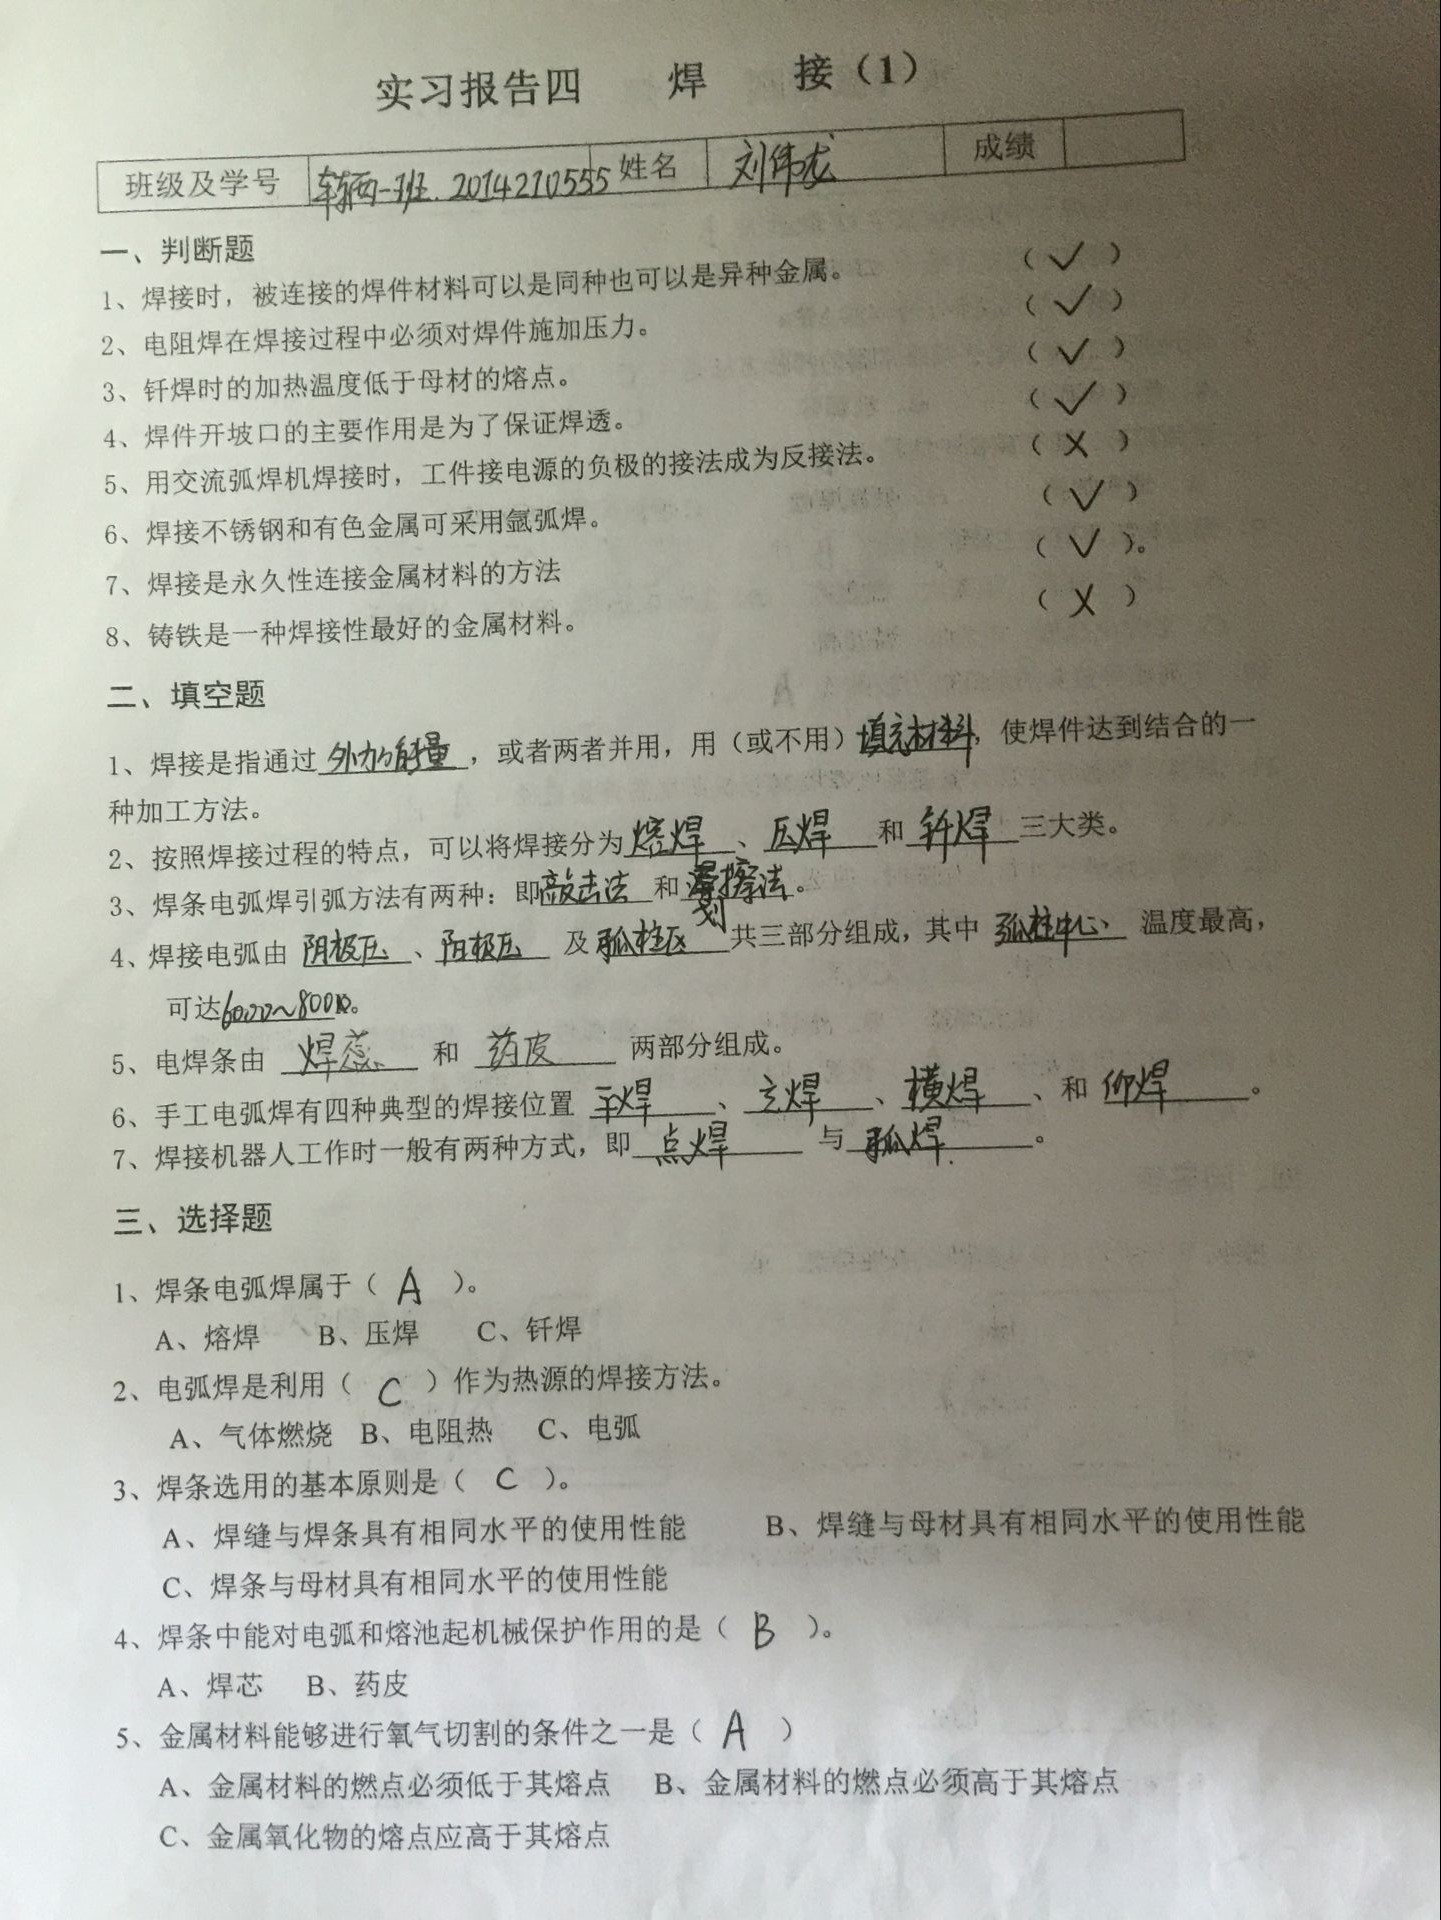 实习报告四 焊 接（1）
班级及学号 车辆一班.2014210555 姓名 刘伟龙 成绩
一、判断题
1、焊接时，被连接的焊件材料可以是同种也可以是异种金属。（√）
2、电阻焊在焊接过程中必须对焊件施加压力。（√）
3、钎焊时的加热温度低于母材的熔点。（√）
4、焊件开坡口的主要作用是为了保证焊透。（√）
5、用交流弧焊机焊接时，工件接电源的负极的接法成为反接法。（X）
6、焊接不锈钢和有色金属可采用氩弧焊。（√）
7、焊接是永久性连接金属材料的方法（√）。
8、铸铁是一种焊接性最好的金属材料。（X）
二、填空题
1、焊接是指通过外加能量，或者两者并用，用（或不用）填充材料，使焊件达到结合的一
种加工方法。
2、按照焊接过程的特点，可以将焊接分为熔焊、压焊和钎焊三大类。
3、焊条电弧焊引弧方法有两种：即敲击法和划擦法。
4、焊接电弧由阴极区、阳极区及弧柱区共三部分组成，其中弧柱中心温度最高，
可达6000~8000K。
5、电焊条由焊蕊和药皮两部分组成。
6、手工电弧焊有四种典型的焊接位置平焊、立焊、横焊、和仰焊。
7、焊接机器人工作时一般有两种方式，即点焊与弧焊。
三、选择题
1、焊条电弧焊属于（A）。
A、熔焊 B、压焊 C、钎焊
2、电弧焊是利用（C）作为热源的焊接方法。
A、气体燃烧 B、电阻热 C、电弧
3、焊条选用的基本原则是（C）。
A、焊缝与焊条具有相同水平的使用性能 B、焊缝与母材具有相同水平的使用性能
C、焊条与母材具有相同水平的使用性能
4、焊条中能对电弧和熔池起机械保护作用的是（B）。
A、焊芯 B、药皮
5、金属材料能够进行氧气切割的条件之一是（A）
A、金属材料的燃点必须低于其熔点 B、金属材料的燃点必须高于其熔点
C、金属氧化物的熔点应高于其熔点